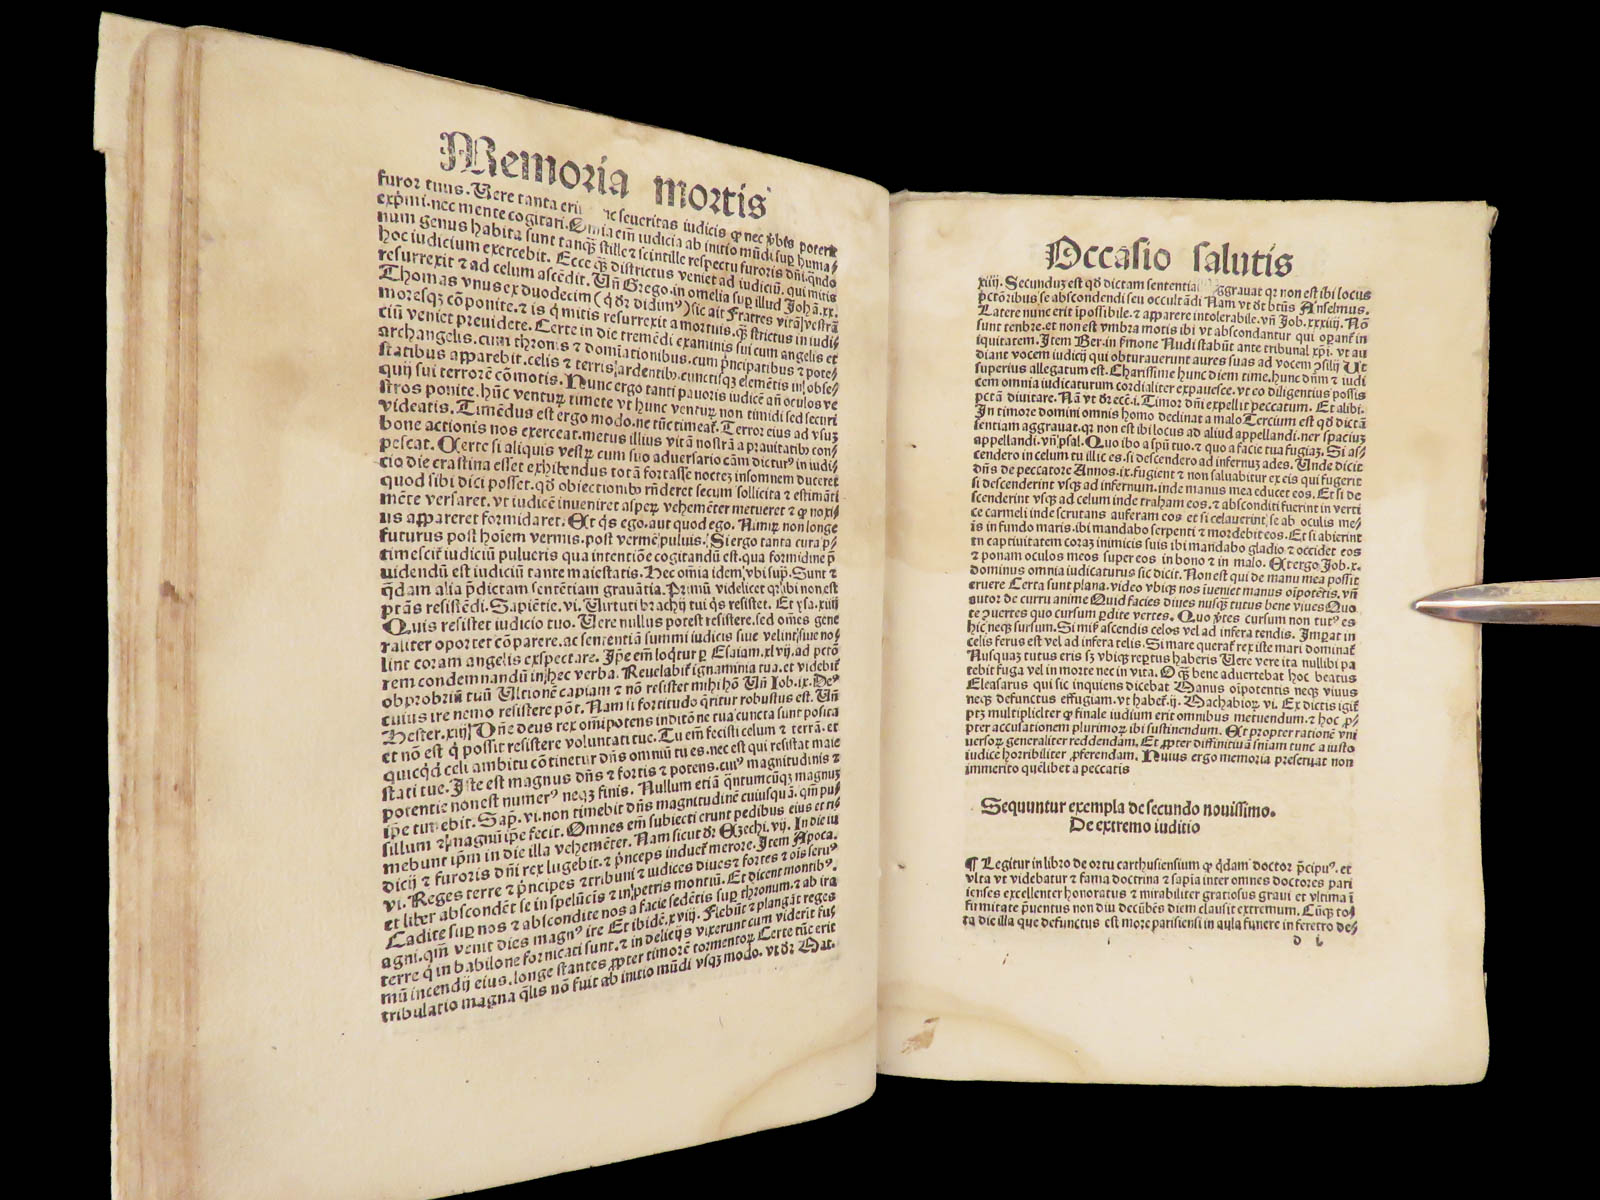 Memoria mortis
furor tuus. Vere tanta erit seueritas iudicis ꝙ nec v̄bis poterit
exp̄mi. nec mente cogitari. Om̄ia em̄ iudicia ab initio mūdi suꝑ huma⸗
num genus habita sunt tanqȝ stille ⁊ scintille respectu furoris dn̄i. qn̄do
hoc iudicium exercebit. Ecce qȝ districtus veniet ad iudiciū. qui mitis
resurrexit ⁊ ad celum ascēdit. Vn̄ Grego. in omelia suꝑ illud Joh̄. xx.
Thomas vnus ex duodecim (q̄ dr̄ didimꝰ) sic ait Fratres vitā vestrā
moresqȝ cōponite. ⁊ is q̄ mitis resurrexit a mortuis. qȝ strictus in iudi⸗
ciū veniet preuidete. Certe in die tremēdi examinis sui cum angelis et
archangelis. cum thronis ⁊ domīationibus. cum p̄ncipatibus ⁊ pote⸗
statibus apparebit. celis ⁊ terris ardentibꝫ. cunctisqȝ elemētis in obse⸗
quij sui terrorē cōmotis. Nunc ergo tanti pauoris iudicē an̄ oculos ve
stros ponite. hūc venturꝵ timete vt hunc venturꝵ non timidi sed securi
videatis. Timēdus est ergo modo. ne tūc timeat̄. Terror eius ad vsuȝ
bone actionis nos exerceat. metus illius vitā nostrā a prauitatibꝫ con⸗
pescat. Certe si aliquis vestꝵ cum suo aduersario cām dicturꝰ in iudi⸗
cio die crastina esset exhibendus totā fortasse nocteȝ insomnem duceret
quod sibi dici posset. qd̄ obiectionibꝫ rn̄deret secum sollicita ⁊ estimāti
mēte versaret. vt iudicē inueniret asperꝵ vehemēter metueret ⁊ ꝙ noxi⸗
us appareret formidaret. Et q̄s ego. aut quod ego. Nimiꝵ non longe
futurus post hoīem vermis. post vermē puluis. Si ergo tanta cura p⸗
timescit̄ iudiciū pulueris qua intentiōe cogitandū est. qua formidine p̄
uidendū est iudiciū tante maiestatis. Hec om̄ia idem vbi sup̄. Sunt ⁊
q̄dam alia p̄dictam sentētiam grauātia. Primū videlicet qr̄ ibi non est
p̄tās resistēdi. Sapiētie. vi. Virtuti brachij tui q̄s resistet. Et ysa. xiiij
Quis resistet iudicio tuo. Vere nullus potest resistere. sed om̄es gene
raliter oportet cōparere. ac sententiā summi iudicis siue velint siue no⸗
lint coram angelis exspectare. Ip̄e em̄ loq̄tur ꝑ Esaiam. xlvij. ad pctō
rem condemnandū in hec verba. Reuelabit̄ ignominia tua. et videbit̄
obprobriū tuū Vltionē capiam ⁊ nō resistet mihi hō Vn̄ Job. ix. Deꝰ
cuius ire nemo resistere pōt. Nam si fortitudo q̄ritur robustus est. Vn̄
Hester. xiij Dn̄e deus rex om̄ipotens in ditōne tua cuncta sunt posita
et nō est q̄ possit resistere voluntati tue. Tu em̄ fecisti celum ⁊ terrā. et
quicq̄d celi ambitu cōtinetur dn̄s omniū tu es. nec est qui resistat maie
stati tue. Iste est magnus dn̄s ⁊ fortis ⁊ potens. cuiꝰ magnitudinis ⁊
potentie non est numerꝰ neqȝ finis. Nullum etiā q̄ntumcūqȝ magnuȝ
ip̄e timebit. Sap̄. vi. non timebit dn̄s magnitudinē cuiusquā. qm̄ pu⸗
sillum ⁊ magnū ip̄e fecit. Omnes em̄ subiecti erunt pedibus eius et ti⸗
mebunt ip̄m in die illa vehemēter. Nam sicut dr̄ Ezechi. vij. In die iu
dicij ⁊ furoris dn̄i rex lugebit. ⁊ p̄nceps induet̄ merore. Item Apoca.
vi. Reges terre ⁊ p̄ncipes ⁊ tribuni ⁊ iudices diues ⁊ fortes ⁊ oīs seruꝰ
et liber abscondēt se in speluncis ⁊ in petris montiū. Et dicent montibꝰ.
Cadite suꝑ nos ⁊ abscondite nos a facie sedētis suꝑ thronum. ⁊ ab ira
agni. qm̄ venit dies magnꝰ ire Et ibidē. xviij. Flebūt ⁊ plangāt reges
terre q̄ in babilone fornicati sunt. ⁊ in delicijs vixerunt cum viderit fu⸗
mū incendij eius. longe stantes ꝓpter timorē tormentoꝵ Certe tūc erit
tribulatio magna q̄lis nō fuit ab initio mūdi vsqȝ modo. vt dr̄ Mat.
Occasio salutis
xiiij. Secunduȝ est qd̄ dictam sententiā aggrauat qr non est ibi locus
p̄ctōribus se abscondendi seu occultādi Nam vt dr̄ btūs Anselmus.
Latere nunc erit īpossibile. ⁊ apparere intolerabile. vn̄ Job. xxxiiij. Nō
sunt tenbre. et non est vmbra motis ibi vt abscondantur qui oꝑant̄ in
iquitatem. Item Ber. in sermone Nudi stabūt ante tribunal xp̄i. vt au
diant vocem iudicij qui obturauerunt aures suas ad vocem ꝯsilij Vt
superius allegatum est. Charissime hunc diem time. hunc dn̄m ⁊ iudi
cem omnia iudicaturum cordialiter expauesce. vt eo diligentius possis
pctā diuitare. Nā vt dr̄ eccē. i. Timor dn̄i expellit peccatum. Et alibi.
In timore domini omnis homo declinat a malo Tercium est qd̄ dictā
sentiam aggrauat. qr non est ibi locus ad aliud appellandi. ner spaciuȝ
appellandi. vn̄ psal. Quo ibo a spū tuo. ⁊ quo a facie tua fugiaȝ. Si as⸗
cendero in celum tu illic es. si descendero ad infernuȝ ades. Unde dicit
dn̄s de peccatore Amos. ix. fugient ⁊ non saluabitur ex eis qui fugerit
si descenderint vsqȝ ad infernum. inde manus mea educet eos. Et si de
scenderint vsqȝ ad celum inde traham eos. ⁊ absconditi fuerint in verti
ce carmeli inde scrutans auferam eos et si celauerint se ab oculis me⸗
is in fundo maris. ibi mandabo serpenti ⁊ mordebit eos. Et si abierint
in captiuitatem coraȝ inimicis suis ibi mandabo gladio ⁊ occidet eos
⁊ ponam oculos meos super eos in bono ⁊ in malo. Et ergo Job. x.
dominus omnia iudicaturus sic dicit. Non est qui de manu mea possit
eruere Certa sunt plana. video vbiqȝ nos iueniet manus oīpotētis. vn̄
autor de curru anime Quid facies diues nusqȝ tutus bene viues Quo
te ꝯuertes quo cursum ꝑdite vertes. Quo p̄tes cursum non tutꝰ es
hic neqȝ sursum. Si mir̄ ascendis celos vel ad infera tendis. Imꝑat in
celis ferus est vel ad infera telis. Si mare querat̄ rex iste mari dominat̄
Nusquaȝ tutus eris sȝ vbiqȝ reptus haberis Vere vere ita nullibi pa
tebit fuga vel in morte nec in vita. O qȝ bene aduertebat hoc beatus
Eleasarus qui sic inquiens dicebat Manus oīpotentis neqȝ viuus
neqȝ defunctus effugiam. vt habet̄. ij. Machabioꝵ. vi. Ex dictis igit̄
ptȝ multiplicīter ꝙ finale iudium erit omnibus metuendum. ⁊ hoc ꝓ⸗
pter accusationem plurimoꝵ ibi sustinendum. Et propter rationē vni
uersoꝵ generaliter reddendam. Et ꝓpter diffinitiuā sn̄iam tunc a iusto
iudice horribiliter ꝓferendam. Huius ergo memoria preseruat non
immerito quēlibet a peccatis
Sequuntur exempla de secundo nouissimo.
De extremo iuditio
¶ Legitur in libro de ortu carthusiensium ꝙ q̄dam doctor p̄cipuꝰ. et
vlta vt videbatur ⁊ fama doctrina ⁊ sapia inter omnes doctores pari
sienses excellenter honoratus ⁊ mirabiliter gratiosus graui et vltima ī
firmitate p̄uentus non diu decūbēs diem clausit extremum. Cūqȝ to⸗
ta die illa que defunctus est more parisiensi in aula funere in feretro de⸗
d i